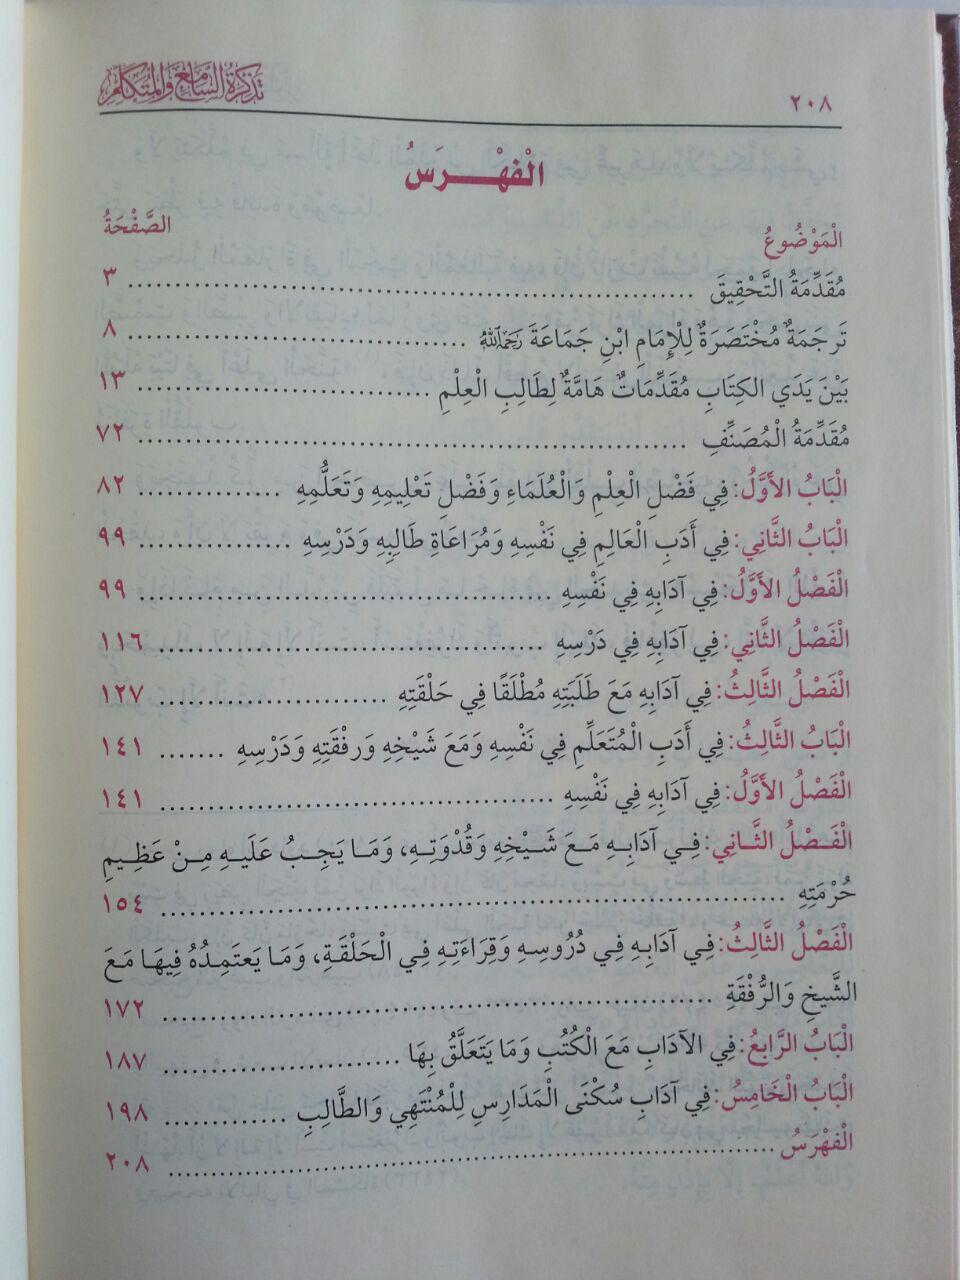 ٢٠٨ تَذْكِرَةُ السَّامِعِ وَالمُتَكَلِّمِ
الْفَهْرَسُ
الْمَوْضُوعُ الصَّفْحَةُ
مُقَدِّمَةُ التَّحْقِيقَ ................................ ٣
تَرجَمَةٌ مُخْتَصَرَةٌ لِلْإِمَامِ ابْنِ جَمَاعَةَ رَحِمَهُ اللَّهُ ................................ ٨
بَيْنَ يَدَي الكِتَابِ مُقَدِّمَاتٌ هَامَّةٌ لِطَالِبِ الْعِلْمِ ................................ ١٣
مُقَدِّمَةُ الْمُصَنِّفِ ................................ ٧٢
الْبَابُ الأَوَّلُ: فِي فَضْلِ الْعِلْمِ وَالْعُلَمَاءِ وَفَضْلِ تَعْلِيمِهِ وَتَعَلُّمِهِ .............. ٨٢
الْبَابُ الثَّانِي: فِي أَدَبِ الْعَالِمِ فِي نَفْسِهِ وَمُرَاعَاةِ طَالِبِهِ وَدَرْسِهِ ................ ٩٩
الْفَصْلُ الأَوَّلُ: فِي آدَابِهِ فِي نَفْسِهِ ................................ ٩٩
الْفَصْلُ الثَّانِي: فِي آدَابِهِ فِي دَرْسِهِ ................................ ١١٦
الْفَصْلُ الثَّالِثُ: فِي آدَابِهِ مَعَ طَلَبَتِهِ مُطْلَقًا فِي حَلْقَتِهِ ........................ ١٢٧
الْبَابُ الثَّالِثُ: فِي أَدَبِ الْمُتَعَلِّمِ فِي نَفْسِهِ وَمَعَ شَيْخِهِ وَرِفْقَتِهِ وَدَرْسِهِ ....... ١٤١
الْفَصْلُ الأَوَّلُ: فِي آدَابِهِ فِي نَفْسِهِ ................................ ١٤١
الْفَصْلُ الثَّانِي: فِي آدَابِهِ مَعَ شَيْخِهِ وَقُدْوَتِهِ، وَمَا يَجِبُ عَلَيهِ مِنْ عَظِيمِ
حُرْمَتِهِ ................................ ١٥٤
الْفَصْلُ الثَّالِثُ: فِي آدَابِهِ فِي دُرُوسِهِ وَقِرَاءَتِهِ فِي الْحَلْقَةِ، وَمَا يَعتَمِدُهُ فِيهَا مَعَ
الشَّيخِ وَالرُّفْقَةِ ................................ ١٧٢
الْبَابُ الرَّابِعُ: فِي الآدَابِ مَعَ الْكُتُبِ وَمَا يَتَعَلَّقُ بِهَا ........................ ١٨٧
الْبَابُ الْخَامِسُ: فِي آدَابِ سُكْنَى الْمَدَارِسِ لِلْمُنْتَهِي وَالطَّالِبِ ............. ١٩٨
الْفَهْرَسُ ................................ ٢٠٨